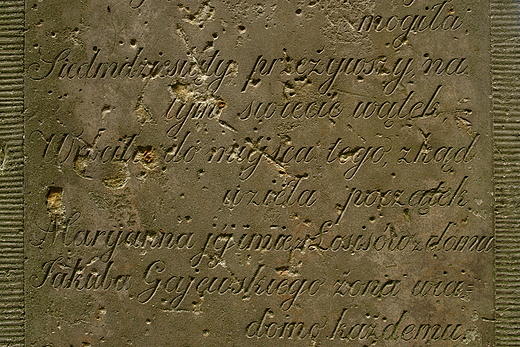 mogiła,
Siedmdziesiąty przeżywszy na
tym świecie wątek,
Wróciła do miejsca tego, zkąd
wzięła początek.
Maryjanna jej imie z Łosisów z domu
Jakuba Gajewskiego żona wia=
domo każdemu,